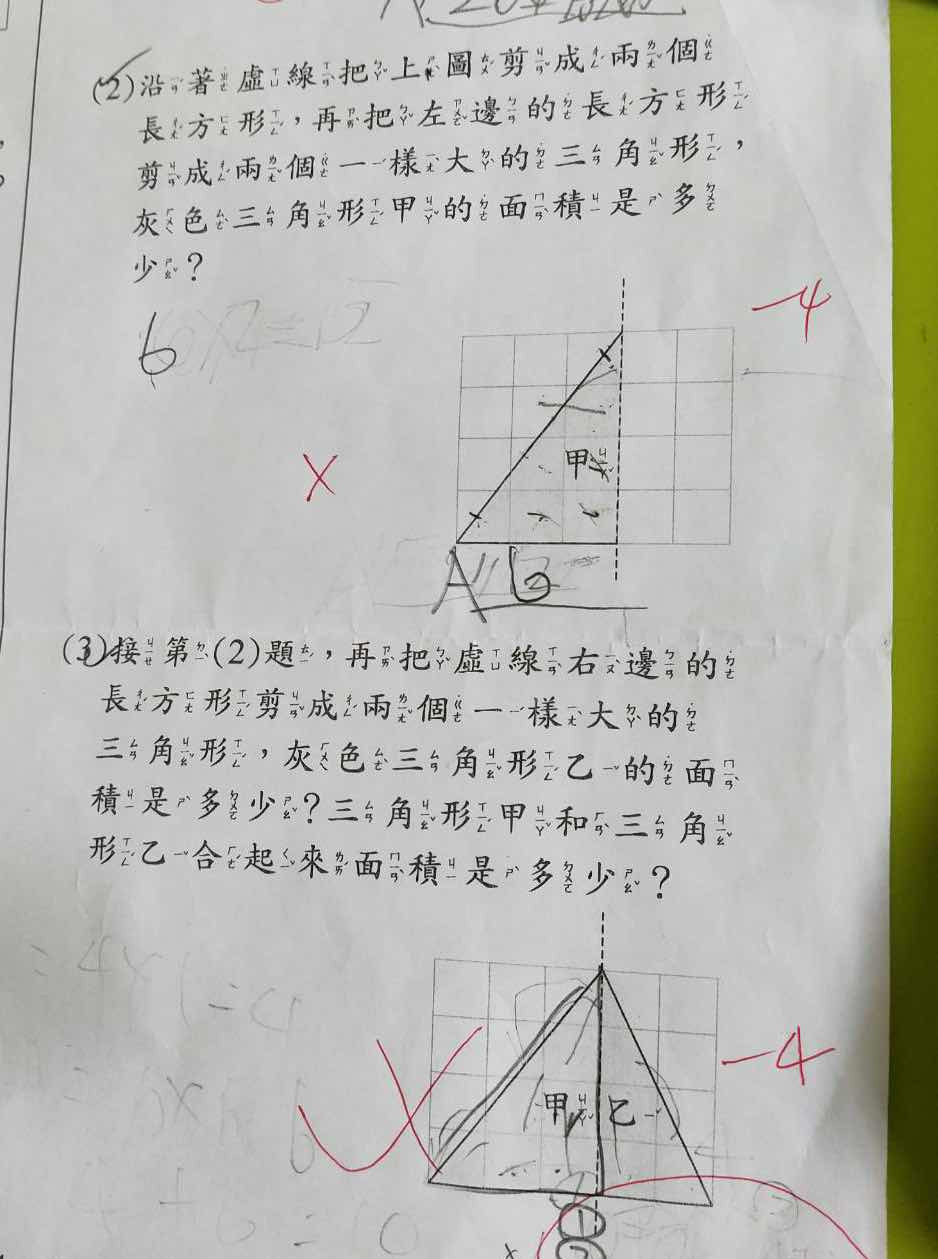 (2)沿著虛線把上圖剪成兩個
長方形，再把左邊的長方形
剪成兩個一樣大的三角形，
灰色三角形甲的面積是多
少？
6
-4
甲
A
(3)接第(2)題，再把虛線右邊的
長方形剪成兩個一樣大的
三角形，灰色三角形乙的面
積是多少？三角形甲和三角
形乙合起來面積是多少？
-4
甲 乙